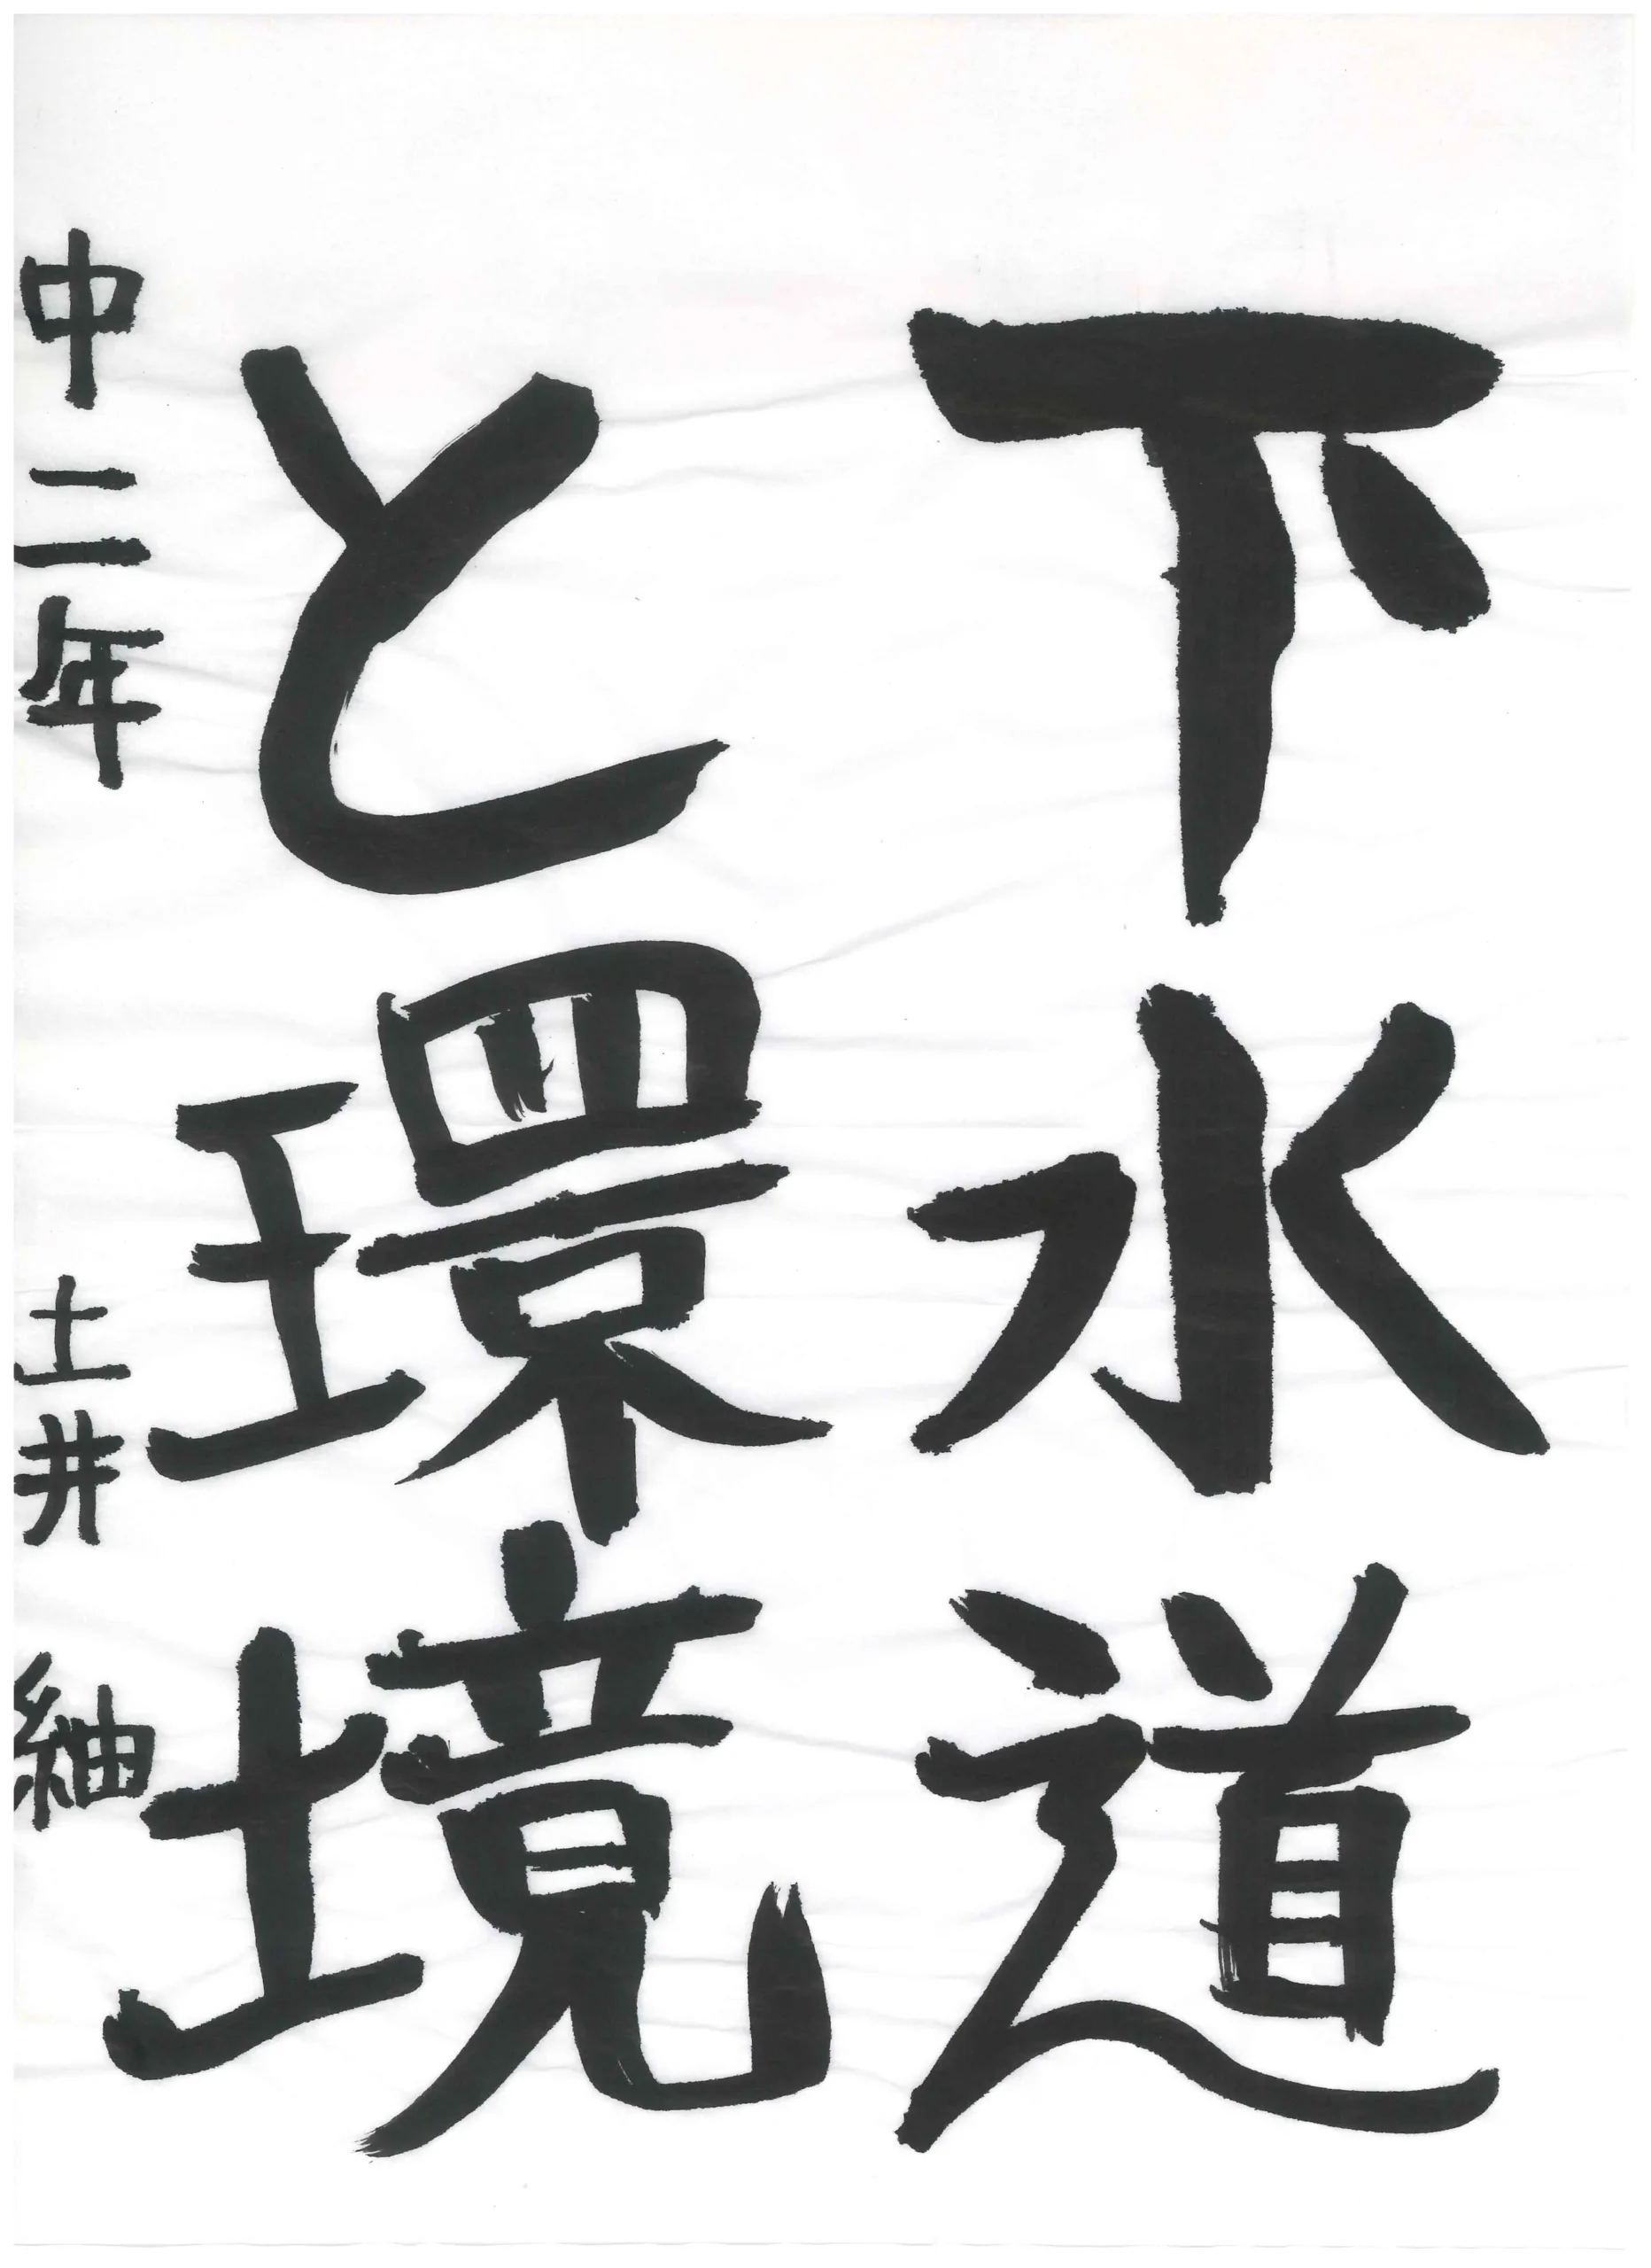 下水道
と環境
中二年 土井 紬